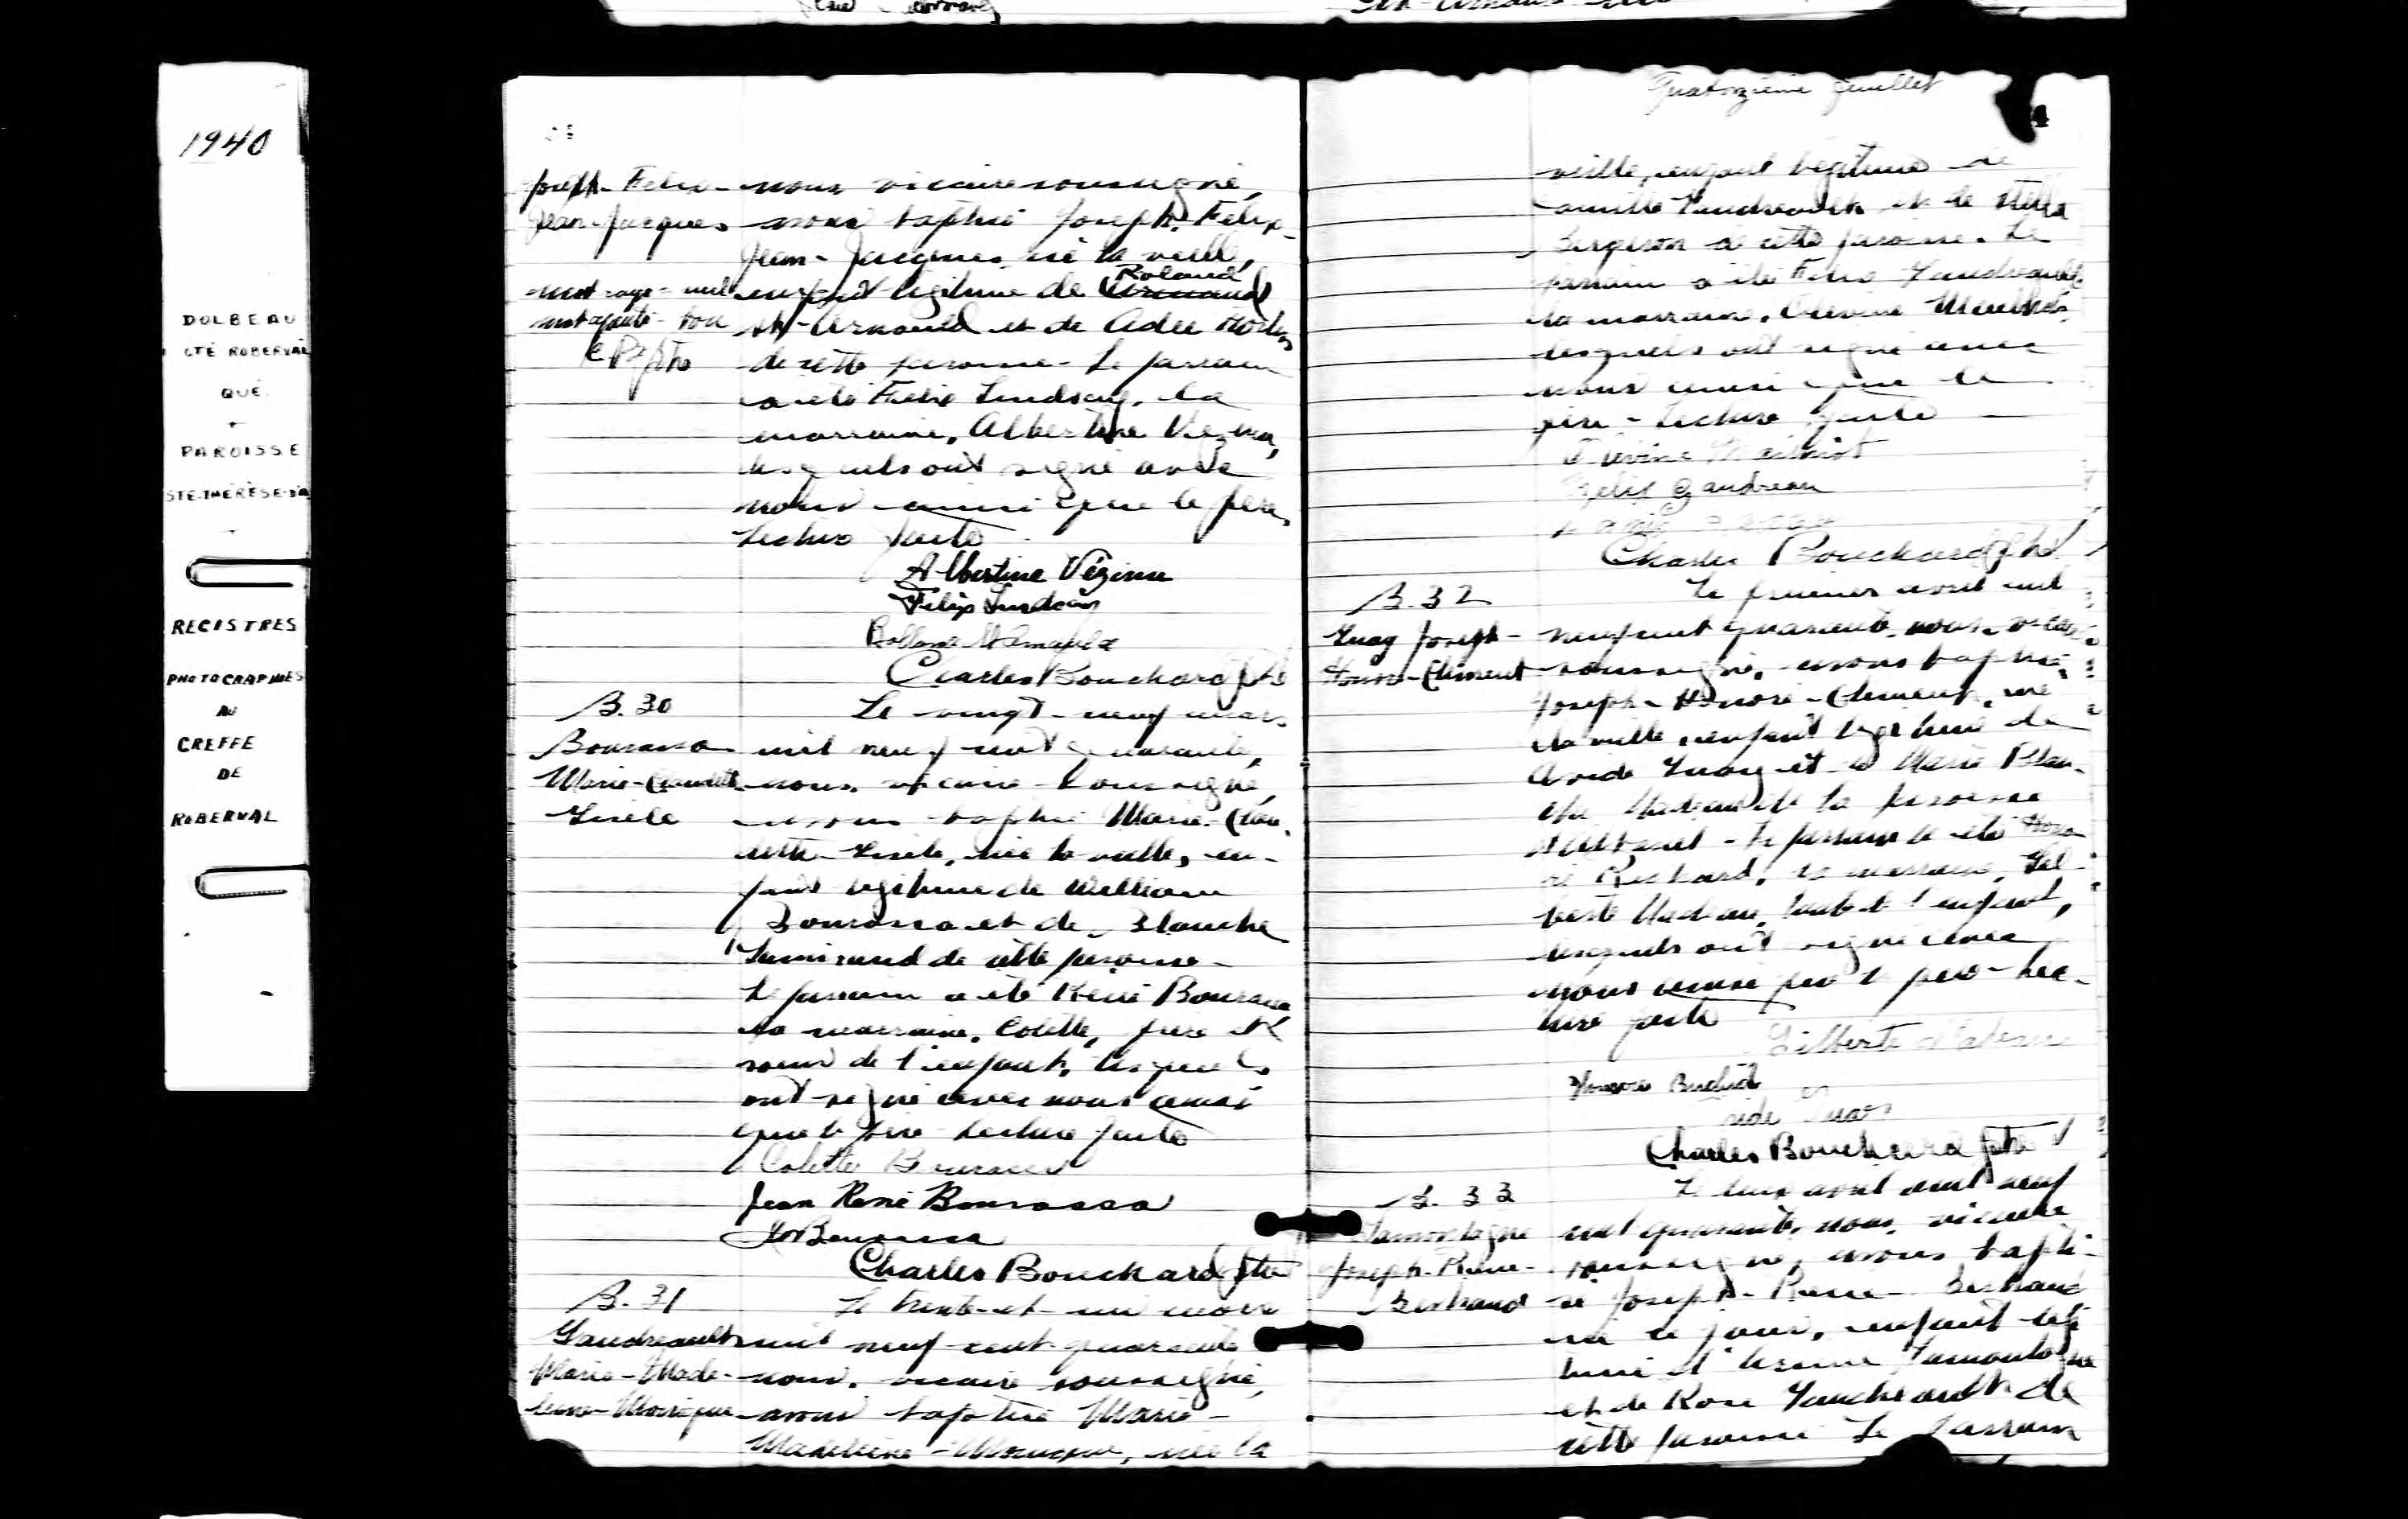 1940
DOLBEAU
CTÉ ROBERVAL
QUÉ.
PAROISSE
STE-THÉRÈSE-D'A
REGISTRES
PHOTOGRAPHIÉS
AU
GREFFE
DE
ROBERVAL
Joseph-Felix-
Jean-Jacques
mot rayé-nul
mot ajouté-bon
nous vicaire soussigné,
avons baptisé Joseph-Félix-
Jean-Jacques, né la veille,
Roland
enfant légitime de Armand
St-Arnauld et de Adée
de cette paroisse. Le parrain
a été Félix Lindsay, la
marraine, Albertine Vézina,
lesquels ont signé avec
nous ainsi que le père.
Lecture faite
Albertine Vézina
Félix Lindsay
Rolland St Arnauld
Charles Bouchard ptre
B. 30
Bourassa
Marie-Claudette
Gisèle
Le vingt-neuf mars
mil neuf cent quarante,
nous, vicaire soussigné,
avons baptisé Marie-Clau-
dette-Gisèle, née la veille, en-
fant légitime de William
Bourassa et de Blanche
de cette paroisse-
Le parrain a été René Bourassa,
la marraine, Colette, frère et
soeur de l'enfant, lesquels
ont signé avec nous ainsi
que le père. Lecture faite
Colette Bourassa
Jean René Bourassa
Bourassa
Charles Bouchard ptre
B. 31
Gaudreault
Marie-Made-
leine-Monique
Le trente-et-un mars
mil neuf cent quarante
nous, vicaire soussigné,
avons baptisé Marie-
Madeleine-Monique, née la
Quatorzième feuillet
veille, enfant légitime de
Camille Gaudreault et de Stella
Bergeron de cette paroisse. Le
parrain a été Félix Gaudreault,
la marraine,
lesquels ont signé avec
nous ainsi que le
père-Lecture faite
Félix Gaudreau
Charles Bouchard ptre
B. 32
Guay Joseph-
Honoré-Clément
Le premier avril mil
neuf cent quarante, nous, vicaire
soussigné, avons baptisé
Joseph-Honoré-Clément, né
la veille, enfant légitime de
Guay et de Marie Blan-
che Nadeau de la paroisse
d'Albanel-Le parrain a été Hono-
ré Richard, la marraine, Gil-
berte Nadeau, tante de l'enfant,
lesquels ont signé avec
nous ainsi que le père-Lec-
ture faite
Gilberte Nadeau
Honoré
Charles Bouchard ptre
B. 33
Lamontagne
Joseph-Pierre-
Bertrand
Le deux avril mil neuf
cent quarante, nous, vicaire
soussigné, avons bapti-
sé Joseph-Pierre-Bertrand
né ce jour, enfant légi-
time d' Lamontagne
et de Rose Gaudreault de
cette paroisse Le parrain